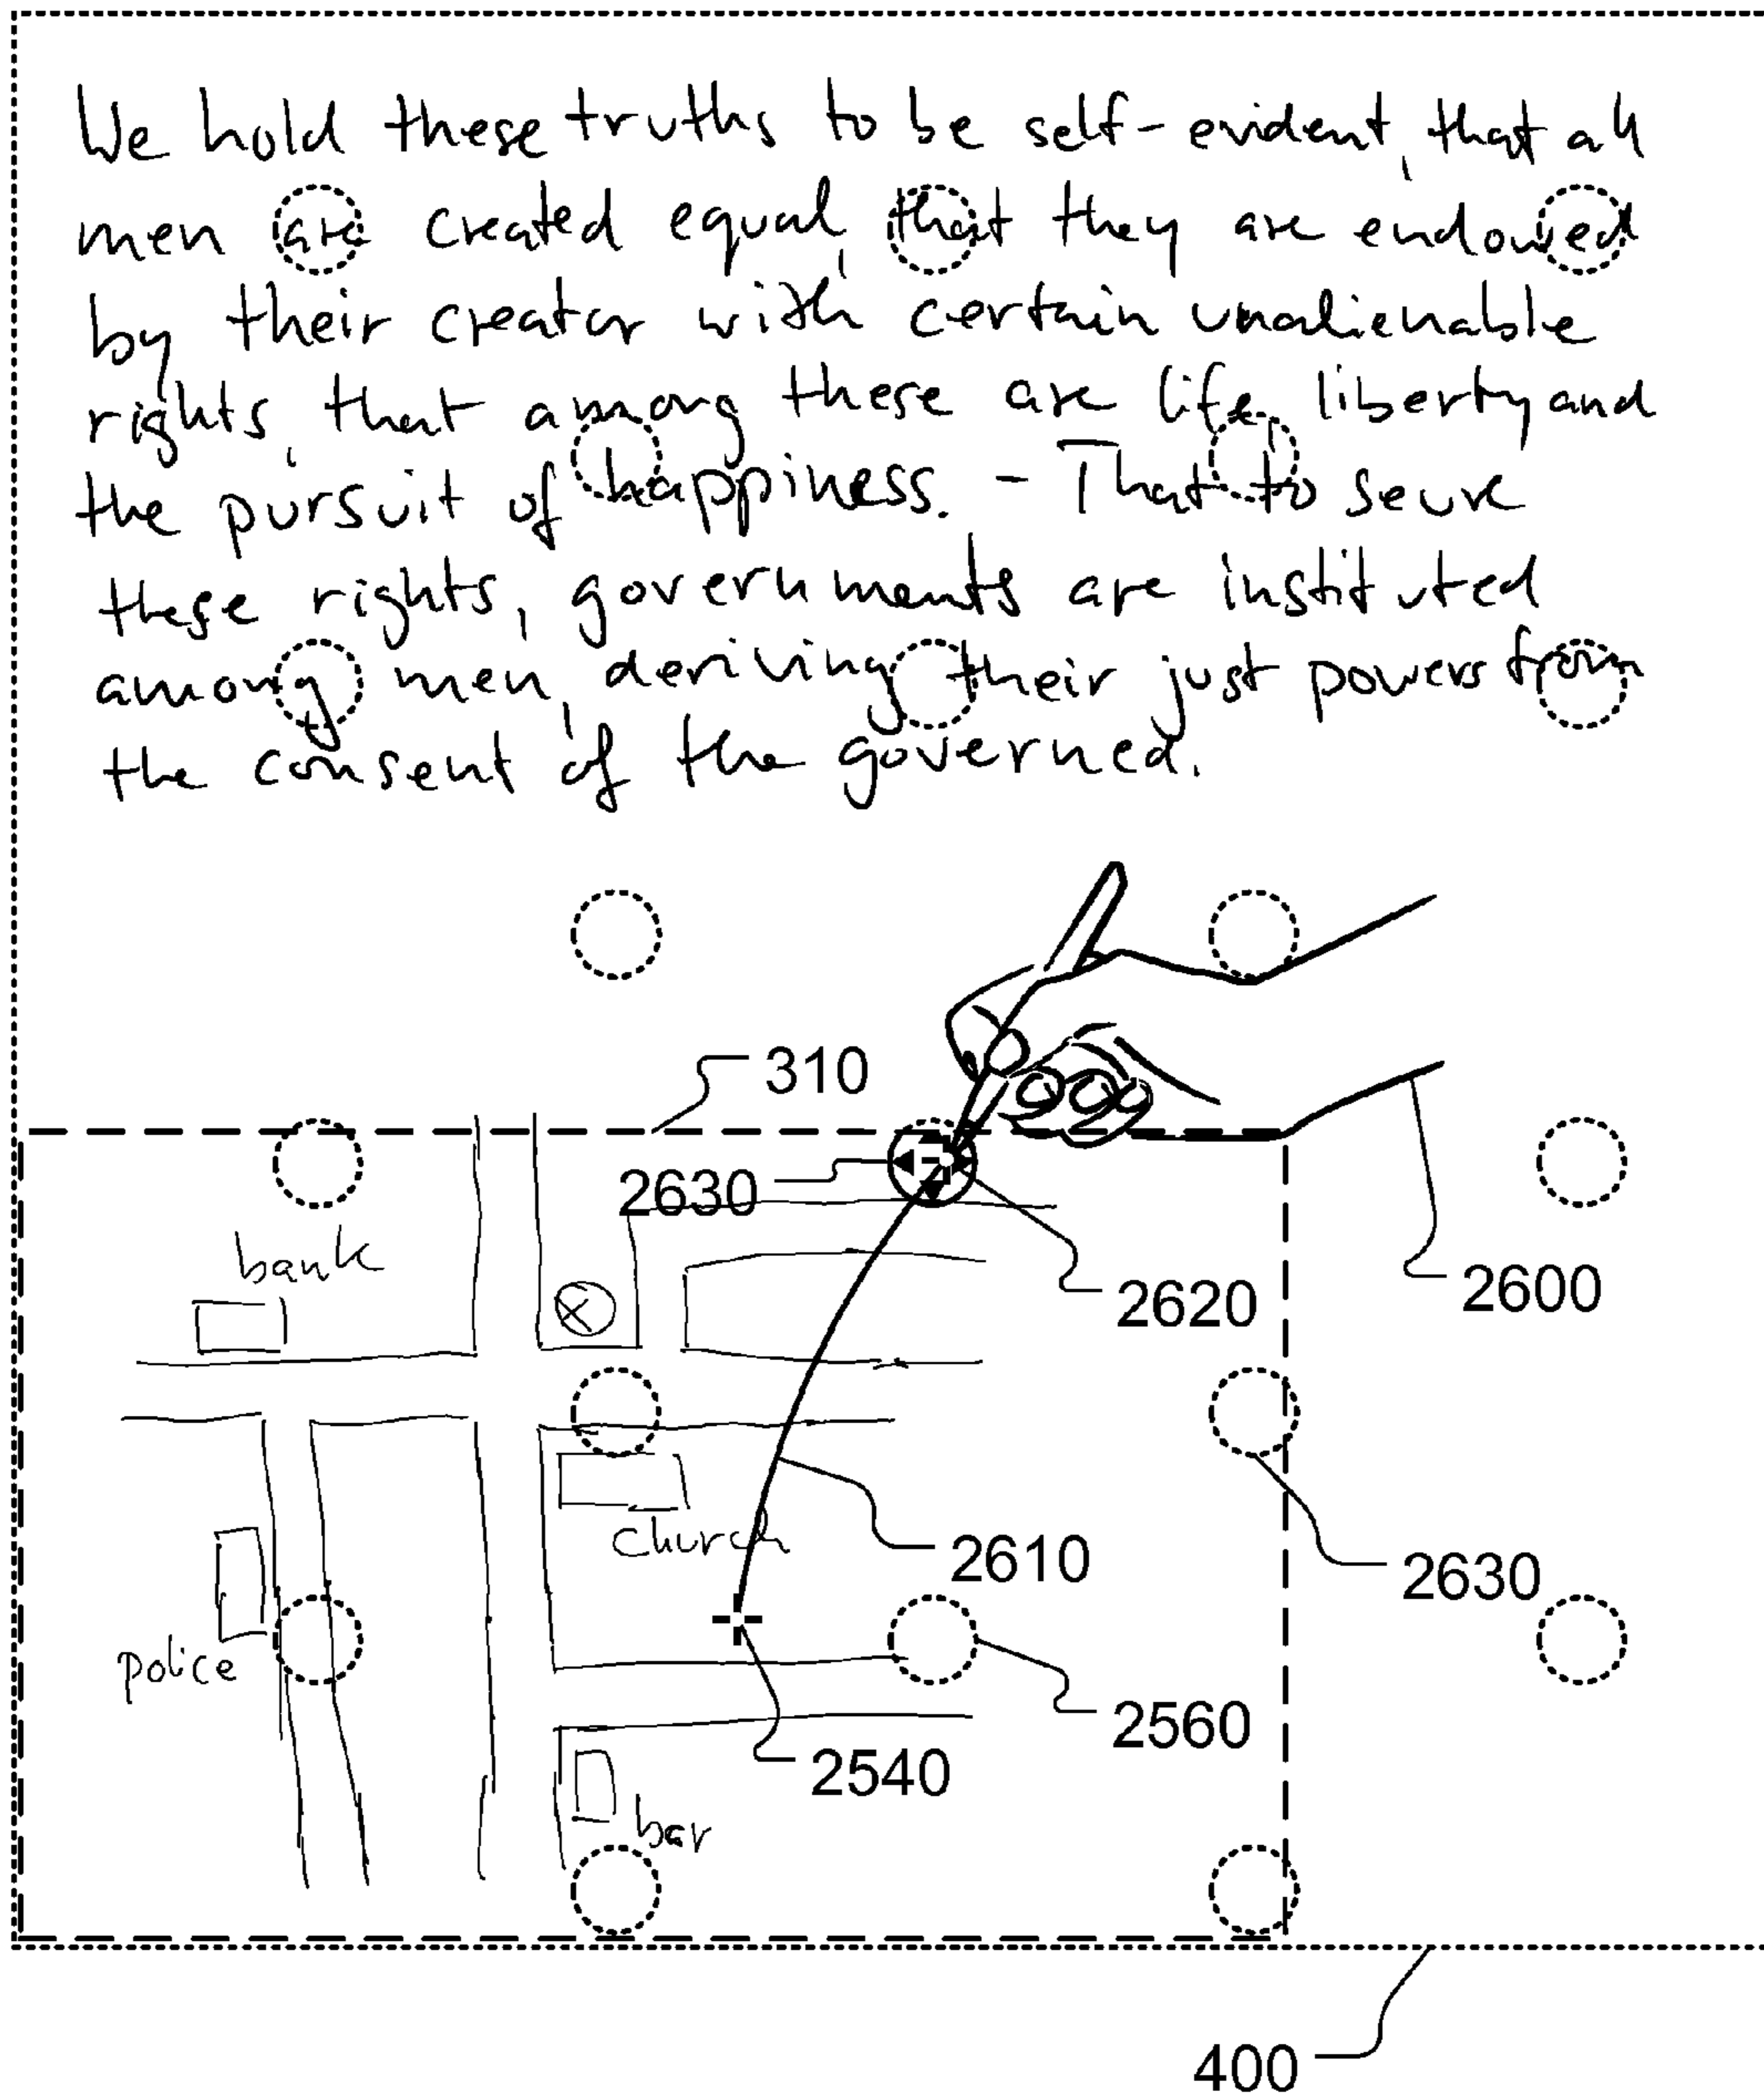 We hold these truths to be self-evident, that all
men are created equal, that they are endowed
by their creator with certain unalienable
rights, that among these are life, liberty and
the pursuit of happiness. - That to seure
these rights, governments are instituted
among men, deriving their just powers from
the consent of the governed.
310
2630
bank
2620
2600
church
2610
2630
police
2560
2540
bar
400